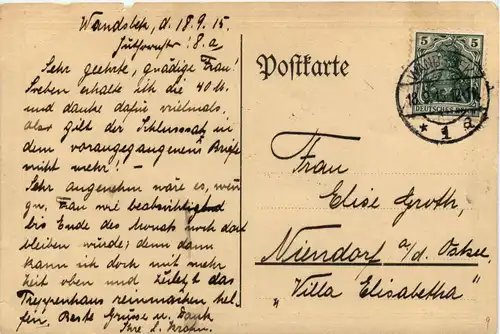 Wandsbek, d. 18.9.15.
8.a
Sehr geehrte, gnädige Frau!
Soeben erhalte ich die 40 M.
und danke dafür vielmals,
also gilt der Schlusssatz in
dem vorangegangenen Briefe
nicht mehr! –
Sehr angenehm wäre es, wenn
gn. Frau wie beabsichtigend
bis Ende des Monats noch dort
bleiben würde; denn dann
kann ich doch mit mehr
Zeit oben und zuletzt das
Treppenhaus reinmachen hel-
fen, Beste Grüsse u. Dank
Ihre L. Krohn.
Postkarte
5 5
DEUTSCHES REICH
18.
* 1 a
Frau
Elise Groth,
Niendorf a/d. Ostsee.
"Villa Elisabetha"